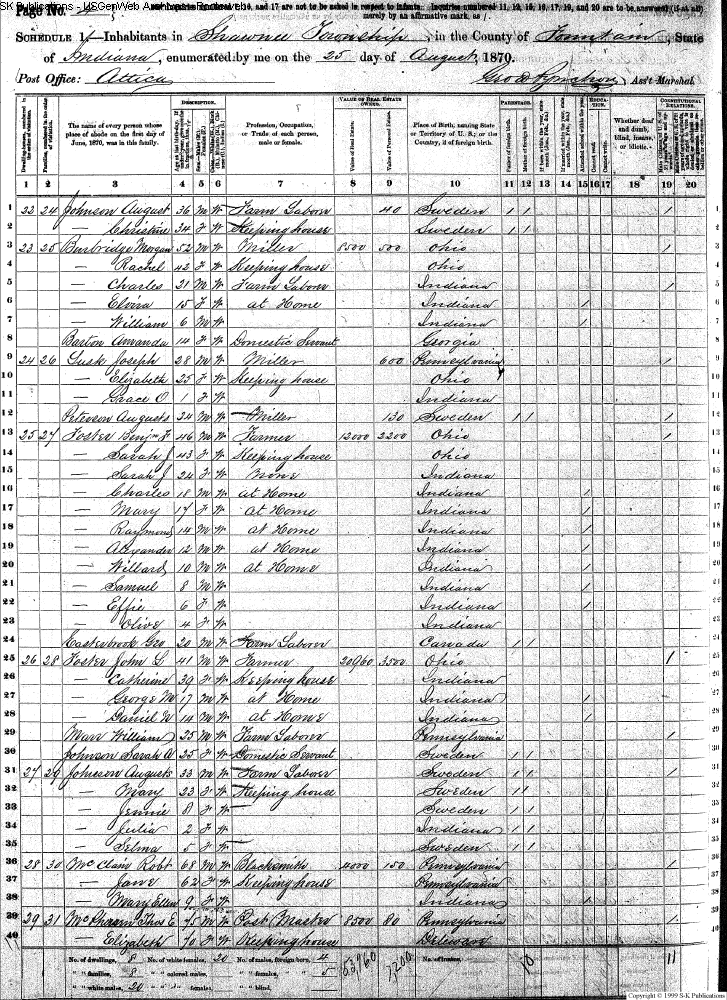 SK Publications - USGenWeb Archives
Page No. 4
16, and 17 are not to be asked in respect to infants. Inquiries numbered 11, 12, 15, 16, 17, 19, and 20 are to be answered (if at all) merely by an affirmative mark, as /.
SCHEDULE 1.—Inhabitants in Shawnee Township, in the County of Fountain, State
of Indiana, enumerated by me on the 25 day of August, 1870.
Post Office: Attica
Ass't Marshal.
DESCRIPTION. VALUE OF REAL ESTATE OWNED. PARENTAGE. EDUCATION. CONSTITUTIONAL RELATIONS.
Dwelling-houses, numbered in the order of visitation.
Families, numbered in the order of visitation.
The name of every person whose place of abode on the first day of June, 1870, was in this family.
Profession, Occupation, or Trade of each person, male or female.
Value of Real Estate.
Value of Personal Estate.
Place of Birth, naming State or Territory of U. S.; or the Country, if of foreign birth.
Father of foreign birth.
Mother of foreign birth.
Attended school within the year.
Cannot read.
Cannot write.
Whether deaf and dumb, blind, insane, or idiotic.
1 2 3 4 5 6 7 8 9 10 11 12 13 14 15 16 17 18 19 20
1 22 24 Johnson August 36 M W Farm Laborer 40 Sweden / / / 1
2 — Christine 34 F W Keeping house Sweden / / 2
3 23 25 Burbridge Morgan 52 M W Miller 8500 500 Ohio / 3
4 — Rachel 42 F W Keeping house Ohio 4
5 — Charles 21 M W Farm Laborer Indiana / 5
6 — Elvira 15 F W at Home Indiana / 6
7 — William 6 M W Indiana / 7
8 Barton Amanda 14 F W Domestic Servant Georgia 8
9 24 26 Lusk Joseph 28 M W Miller 600 Pennsylvania / 9
10 — Elizabeth 25 F W Keeping house Ohio 10
11 — Grace O 1 F W Indiana 11
12 Peterson Augusts 24 M W Miller 130 Sweden / / / 12
13 25 27 Foster Benjn F 46 M W Farmer 12000 2200 Ohio / 13
14 — Sarah J 43 F W Keeping house Ohio 14
15 — Sarah J 24 F W None Indiana 15
16 — Charles 18 M W at Home Indiana / 16
17 — Mary 17 F W at Home Indiana / 17
18 — Raymond 14 M W at Home Indiana / 18
19 — Alexander 12 M W at Home Indiana / 19
20 — Willard 10 M W at Home Indiana / 20
21 — Samuel 8 M W Indiana / 21
22 — Effie 6 F W Indiana / 22
23 — Olive 4 F W Indiana 23
24 Easterbrook Geo 20 M W Farm Laborer Canada / / 24
25 26 28 Foster John G 41 M W Farmer 20960 3500 Ohio / 25
26 — Catherine 39 F W Keeping house Indiana 26
27 — George M 17 M W at Home Indiana / 27
28 — Daniel W 14 M W at Home Indiana / 28
29 Marr William 25 M W Farm Laborer Pennsylvania 29
30 Johnson Sarah A 25 F W Domestic Servant Sweden / / 30
31 27 29 Johnson Augusts 33 M W Farm Laborer Sweden / / / 31
32 — Mary 23 F W Keeping house Sweden / / 32
33 — Jennie 8 F W Sweden / / 33
34 — Julia 2 F W Indiana / / 34
35 — Selma 5 F W Sweden / / 35
36 28 30 McClain Robt 68 M W Blacksmith 4000 150 Pennsylvania / 36
37 — Jane 62 F W Keeping house Pennsylvania 37
38 — Mary Ellen 9 F W Indiana / 38
39 29 31 Thos E 75 M W Post Master 8500 80 Pennsylvania / 39
40 — Elizabeth 70 F W Keeping house Delaware 40
No. of dwellings, 8 No. of white females, 20 No. of males, foreign born, 4 53,960 7,200 No. of insane, 11
" " families, 8 " " colored males, " " females, " 5 10
" " white males, 20 " " " females, " " blind,
Copyright © 1999 S-K Publications